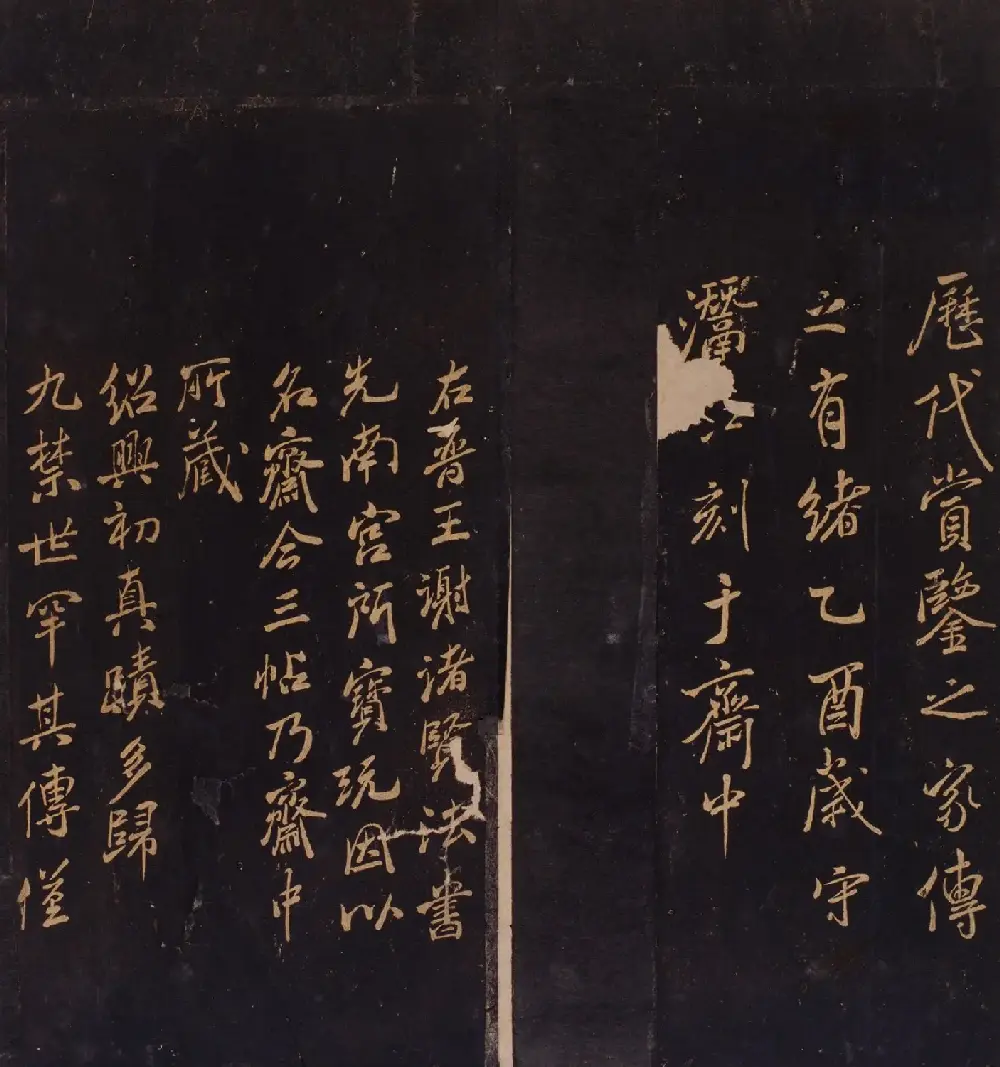 歷代賞鑒之家傳
之有緒乙酉歲守
刻于齋中
右晉王謝諸賢法書
先南宮所寶玩因以
名齋今三帖乃齋中
所藏
紹興初真蹟多歸
九禁世罕其傳僅